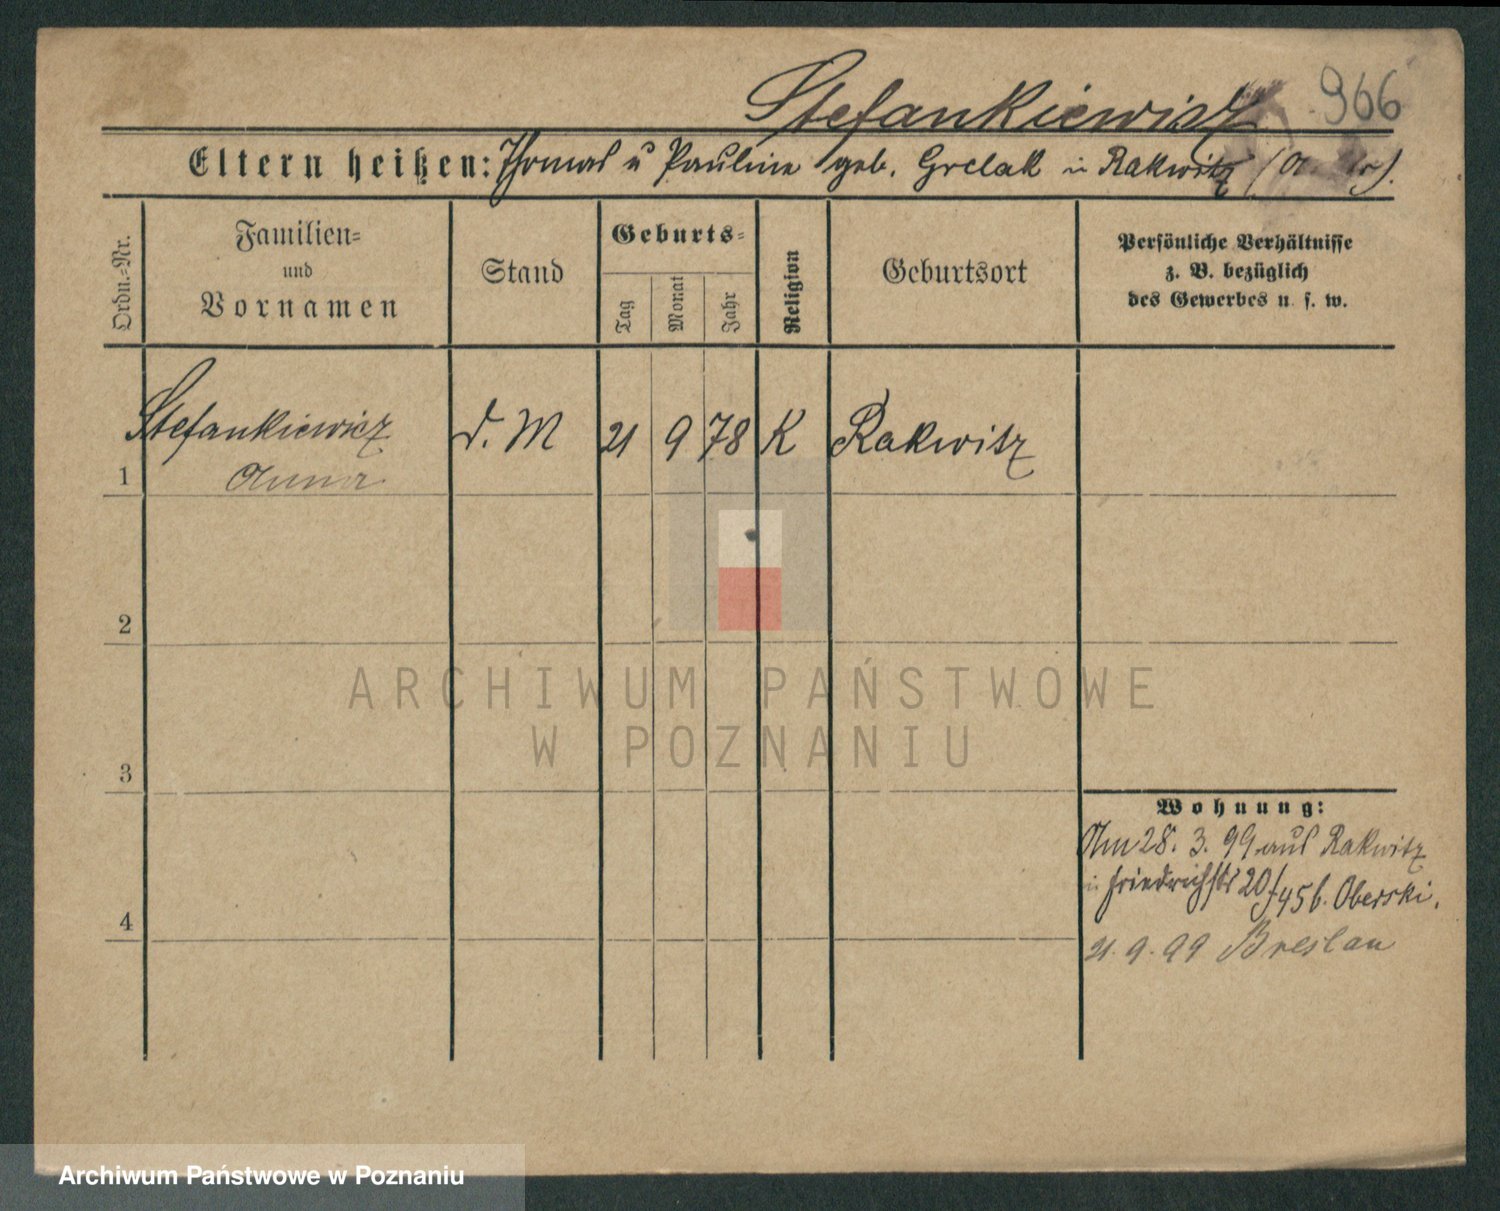 Stefankiewicz 966
Eltern heißen: Thomas u Pauline geb. Grelak in Rakwitz
Ordn.-Nr.
Familien-
und
Vornamen
Stand
Geburts-
Tag
Monat
Jahr
Religion
Geburtsort
Persönliche Verhältnisse
z. B. bezüglich
des Gewerbes u. s. w.
1 Stefankiewicz d. M 21 9 78 K Rakwitz
Anna
2
3
4
Wohnung:
Am 28. 3. 99 aus Rakwitz
in Friedrichstr 20/45 b. Oberski.
21. 9. 99 Breslau
ARCHIWUM PAŃSTWOWE
W POZNANIU
Archiwum Państwowe w Poznaniu